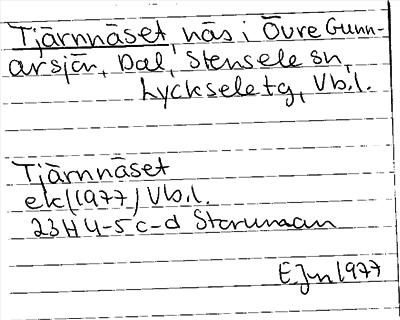 Tjärnnäset, näs i Övre Gunn-
arsjön, Dal, Stensele sn,
Lycksele tg, Vb.l.
Tjärnnäset
ek (1977) Vb.l.
23H 4-5 c-d Storuman
E.Jn 1977